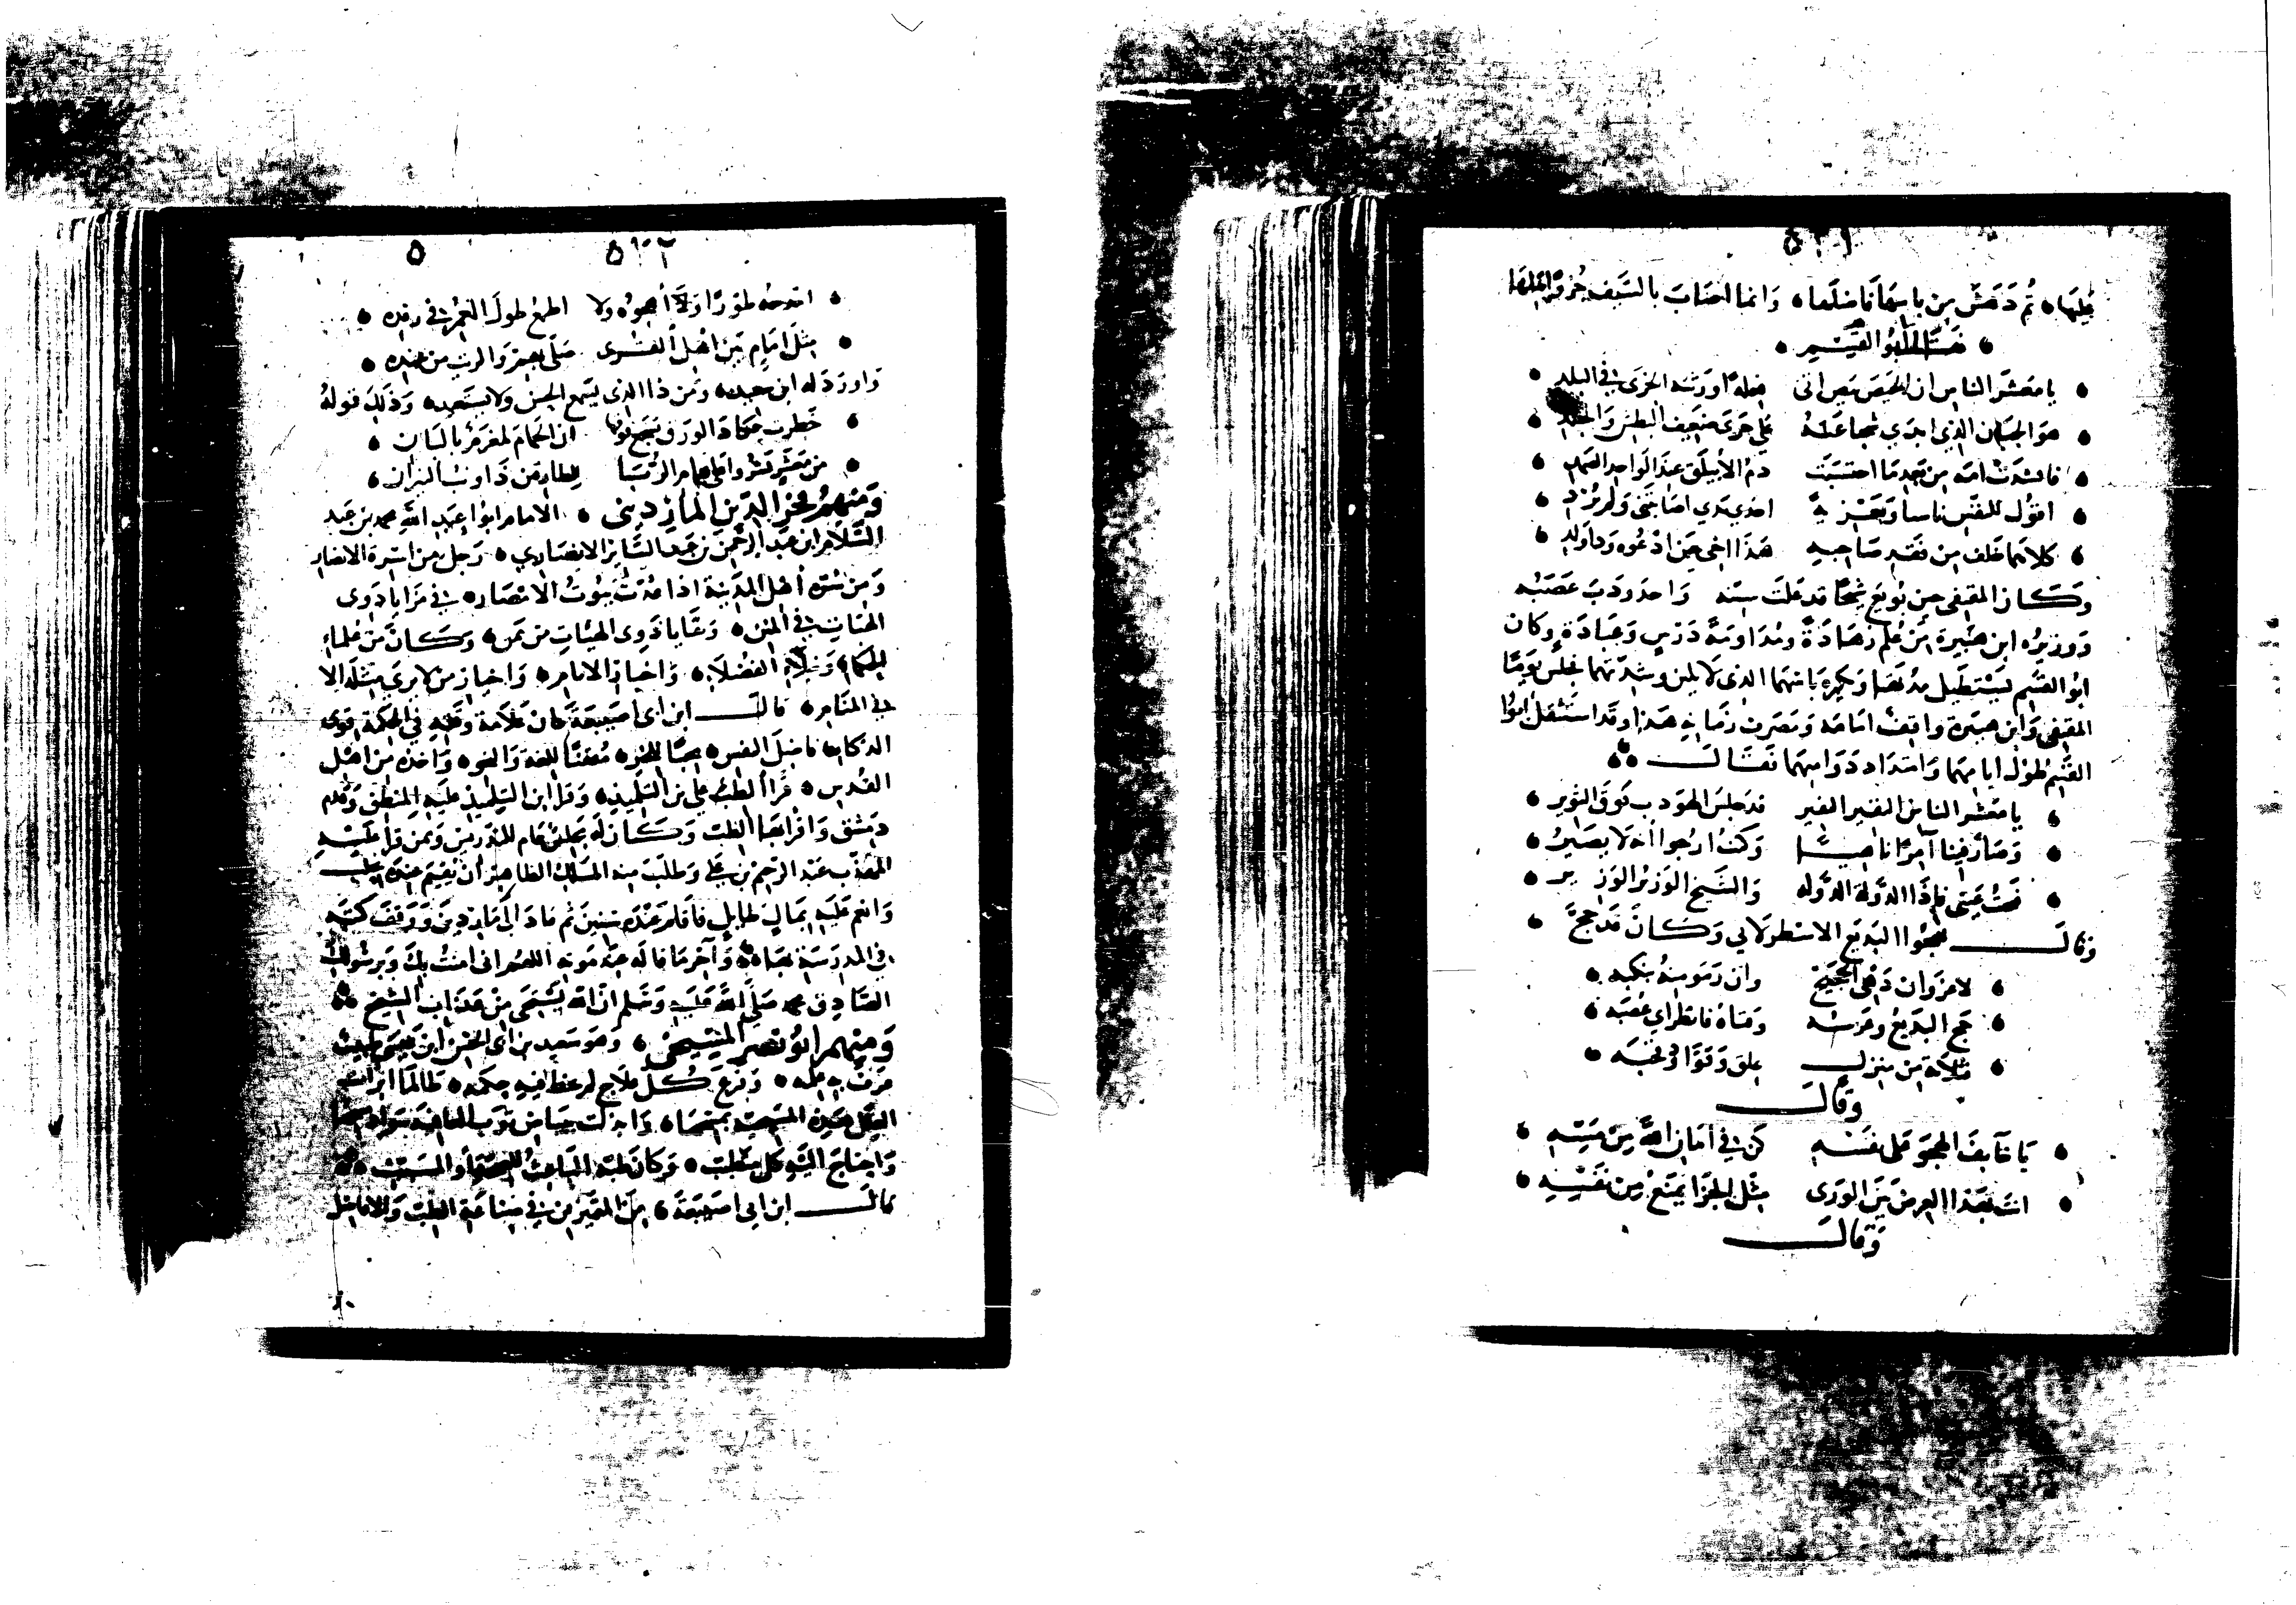 عليها، ثم دهش من باسها فاضلها، وانما اصاب بالسيف جزوًا
فقال ابو القسم
يا معشر الناس ان الحيص بيص اتى فعلة اورثته الخزى في البلد
هو الجبان الذى ابدى شجاعته على جرى ضعيف البطش والجلد
فانشدت امه من بعد ما احتسبت دم الأبيلق عند الواحد الصمد
اقول للنفس تاساء وتعزية احدى يدي اصابتنى ولم ترد
كلاهما خلف من فقد صاحبه هذا اخى حين ادعوه وذا ولدى
وكان المقتفى حين بويع شيخًا قد علت سنه
ووزيره ابن هبيرة من علم زهادة ومداومة درس وعبادة وكان
ابو القسم يستطيل مدتها ويكره بأسهما الذى لا يلين وشدتهما فجلس يومًا
المقتفى وابن هبيرة واقف امامه وقد استثقل ابو
القسم طول ايامهما وامتداد دوامهما فقال
يا معشر الناس النفير النفير قد جلس الهردب فوق السرير
وصار فينا آمرًا ناهيًا وكنت ارجو أنه لا يصير
فصحت عينى فاذا الدولة الدولة والشيخ الوزير الوزير
وقال يهجو البديع الاسطرلابي وكان قد حج
لا غرو ان دهى الحجيج وان رموا منه بنكبه
حج البديع وعرسه وفتاه فانظر اي عصبه
ثلاثة من منزل علق وقواد وقحبه
وقال
يا خايف الهجو على نفسه كن في امان الله من مسه
انت بهذا العرض بين الورى مثل الخرا يمنع من نفسه
وقال
٥٠٢ ٥
امدحه طورًا ولا أهجوه ولا اطمع طول العمر في رفده
مثل امام بين اهل القرى صلى بهم والزيت من عنده
واورد له ابن ومن ذا الذى يسمع الحسن ولا يستعيده، وذلك قوله
خطرت فكاد الورق يسجع فوقها ان الحمام لمغرم بالبان
من معشر نشروا على هام الربا للطارقين ذوايب النيران
ومنهم فخر الدين الماردينى، الامام ابو عبد الله محمد بن عبد
السلام ابن عبد الرحمن بن عبد الساتر الانصاري، رجل من اسرة الانصار
ومن اهل المدينة اذا عدت بيوت الانصار، في مزايا ذوى
الهبات في المنن، وكان من علماء
الحكما وجلة الفضلا، واخيار الايام، واخيار من لا يرى مثله الا
في المنام، قال ابن ابى اصيبعة كان علامة وقته في الحكمة قوى
الذكاء، فاضل النفس، محبًا للخير، متقنًا للغة والنحو، واخذه من اهل
القدس، قرأ الطب على بن التلميذ، وقرا ابن التلميذ عليه المنطق وقدم
دمشق واقرا بها الطب وكان له مجلس عام للتدريس وممن قرا عليه
المهذب عبد الرحيم بن علي وطلب منه الملك الظاهر أن يقيم عنده بحلب
وانعم عليه بمال طايل فاقام عنده سنين ثم عاد الى ماردين ووقف كتبه
في المدرسة بها، وآخر ما قاله عند موته اللهم انى امنت بك وبرسولك
الصادق محمد صلى الله عليه وسلم ان الله يستحى من عذاب الشيخ
ومنهم ابو نصر المسيحى، وهو سعيد بن ابى الخير ابن عيسى طبيب
عرف به مثله، وفرع كل علاج لم يخط فيه حكمه، طالما ابرات
العلل هذه المسيحية بمسحها
واحتاج اليه كل متطبب، وكان طبه الباعث للصحة والمسبب
قال ابن ابى اصيبعة، من المتميزين في صناعة الطب والافاضل